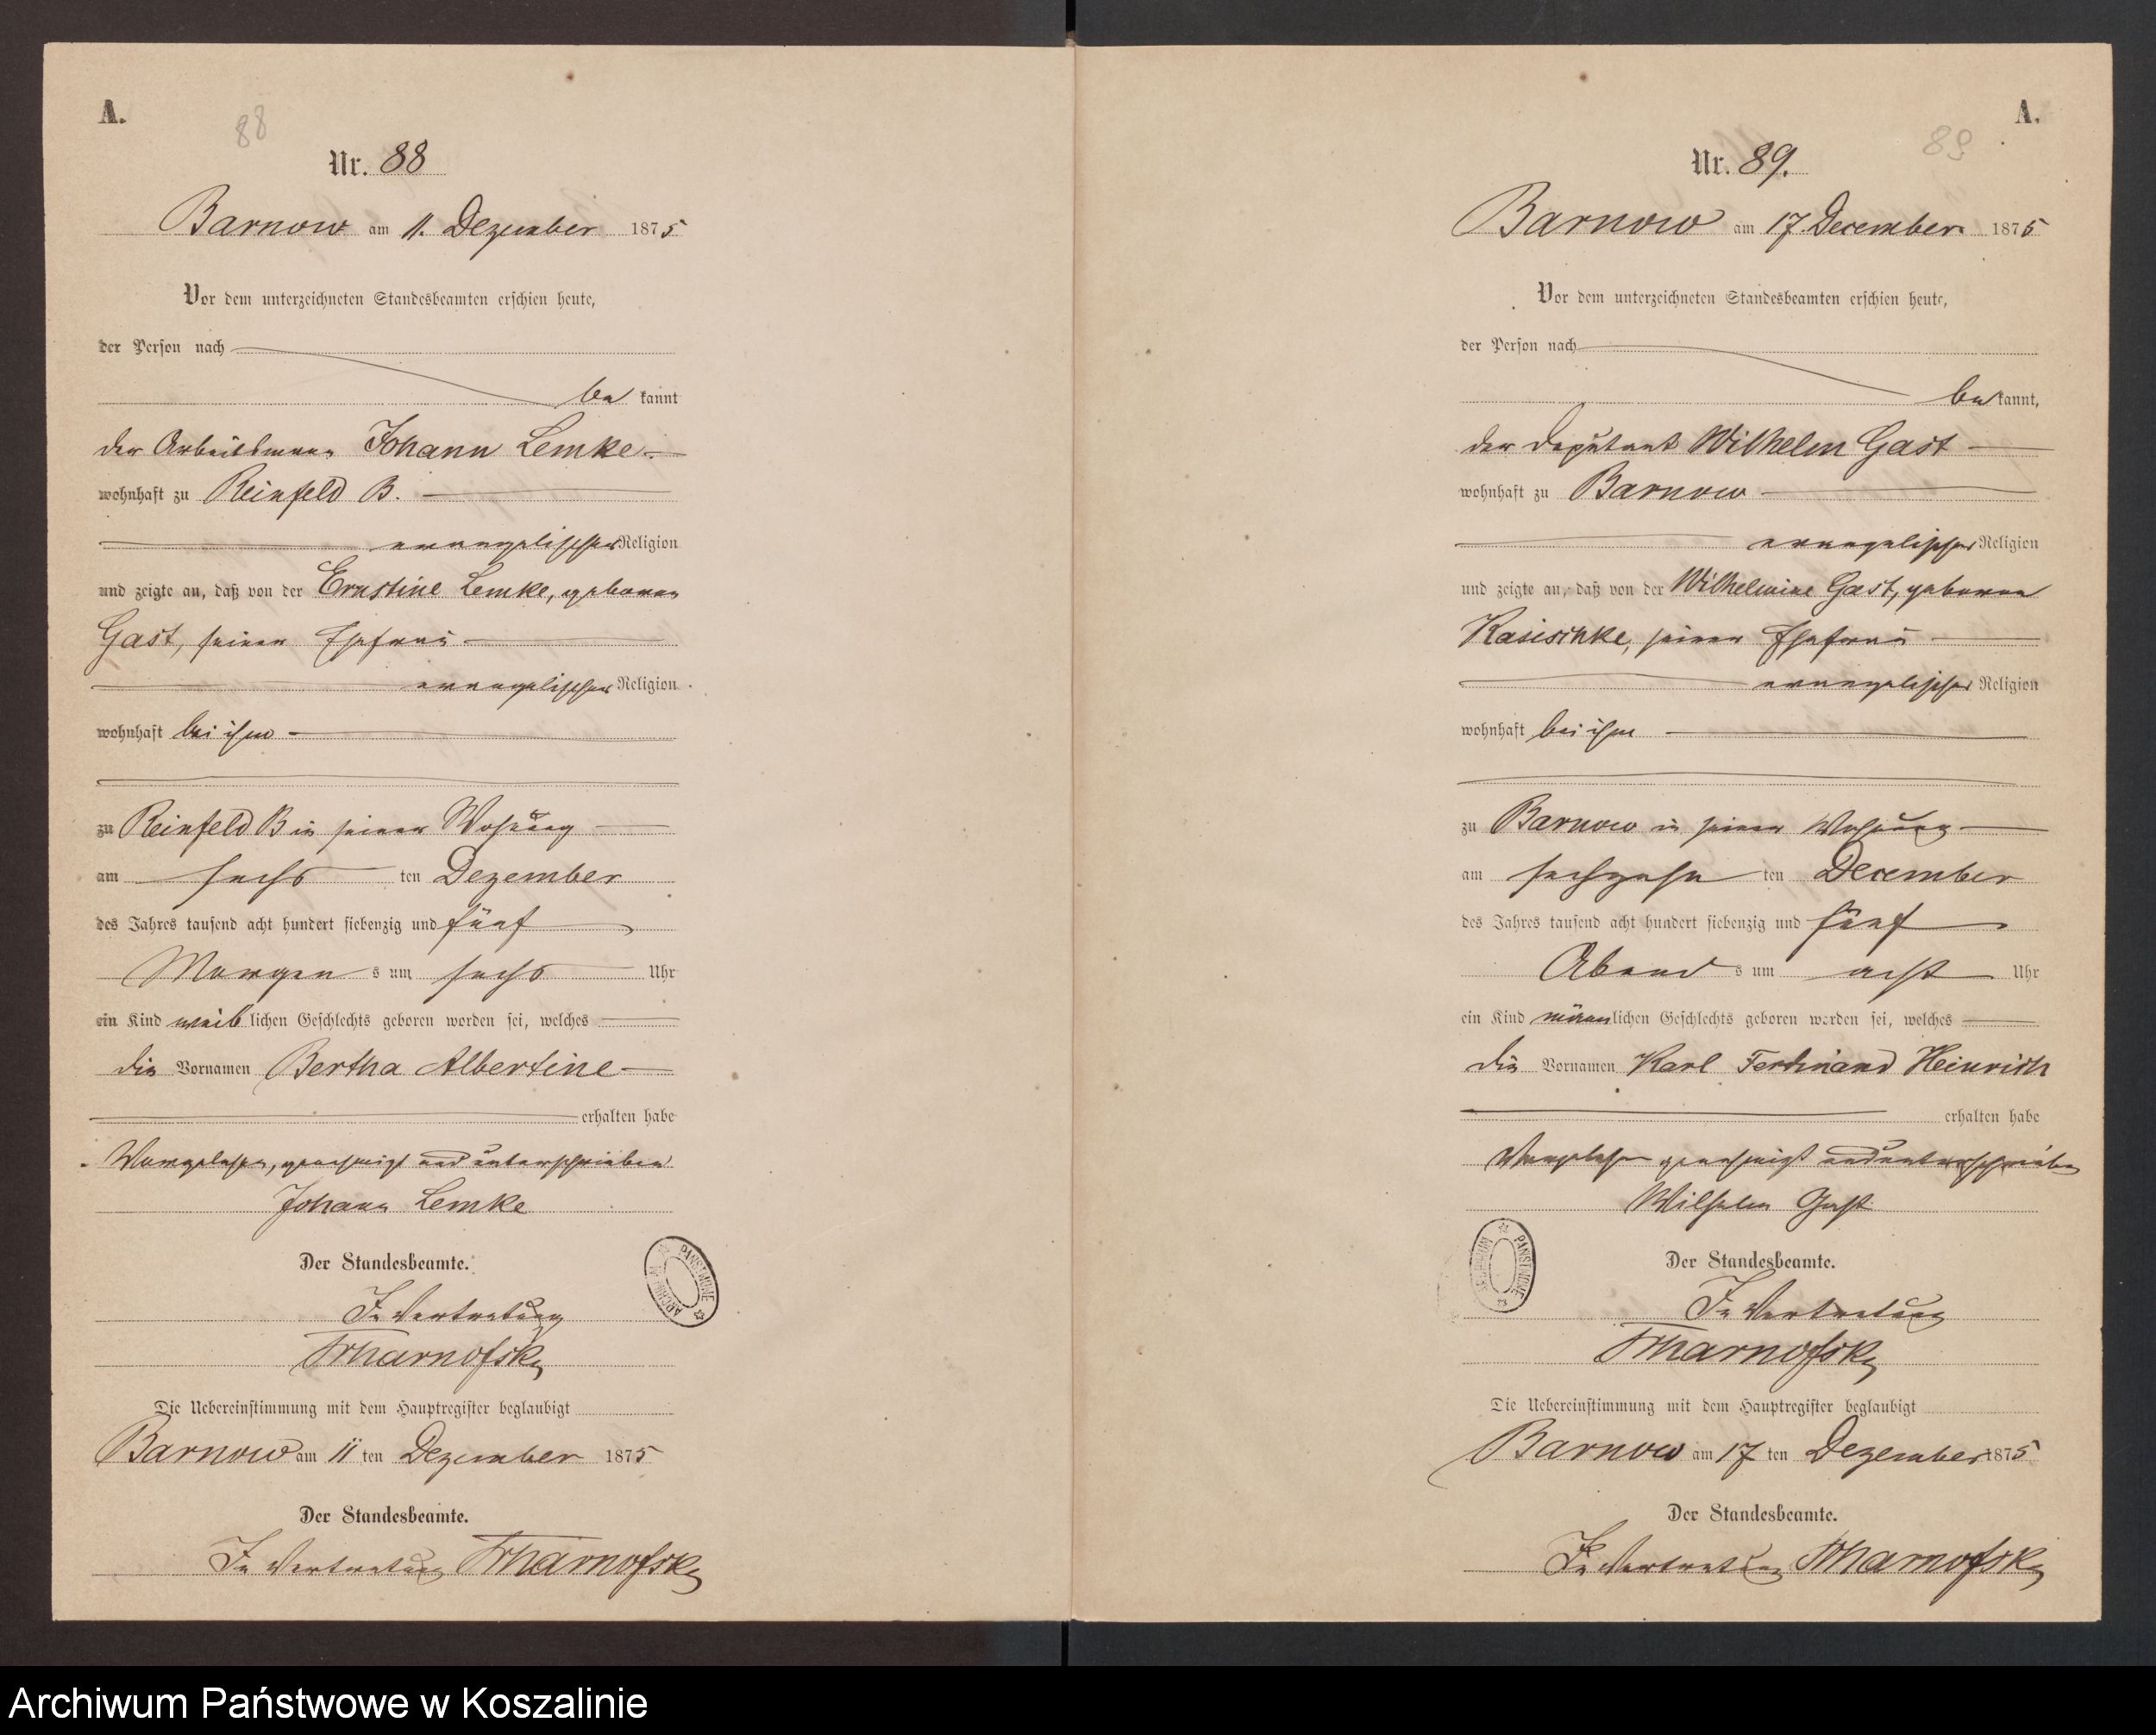 A.
88
Nr. 88
Barnow am 11. Dezember 1875
Vor dem unterzeichneten Standesbeamten erschien heute,
der Person nach
be kannt
der Arbeitsmann Johann Lemke
wohnhaft zu Reinfeld B.
evangelischer Religion
und zeigte an, daß von der Ernstine Lemke, geboren
Gast, seiner Ehefrau
evangelischer Religion
wohnhaft bei ihm
zu Reinfeld B in seiner Wohnung
am sechs ten Dezember
des Jahres tausend acht hundert siebenzig und fünf
Morgen s um sechs Uhr
ein Kind weiblichen Geschlechts geboren worden sei, welches
die Vornamen Bertha Albertine
erhalten habe
Vorgelesen, genehmigt und unterschrieben
Johann Lemke
Der Standesbeamte.
In Vertretung
Die Uebereinstimmung mit dem Hauptregister beglaubigt
Barnow am 11 ten Dezember 1875
Der Standesbeamte.
In Vertretung
ARCHIWUM PAŃSTWOWE
A.
89
Nr. 89.
Barnow am 17. December 1875
Vor dem unterzeichneten Standesbeamten erschien heute,
der Person nach
be kannt,
der Deputant Wilhelm Gast
wohnhaft zu Barnow
evangelischer Religion
und zeigte an, daß von der Wilhelmine Gast, geboren
Kasischke, seiner Ehefrau
evangelischer Religion
wohnhaft bei ihm
zu Barnow in seiner Wohnung
am sechszehn ten December
des Jahres tausend acht hundert siebenzig und fünf
Abend s um acht Uhr
ein Kind männlichen Geschlechts geboren worden sei, welches
die Vornamen Karl Ferdinand Heinrich
erhalten habe
Vorgelesen genehmigt und unterschrieben
Wilhelm Gast
ARCHIWUM PAŃSTWOWE
Der Standesbeamte.
In Vertretung
Die Uebereinstimmung mit dem Hauptregister beglaubigt
Barnow am 17 ten Dezember 1875
Der Standesbeamte.
In Vertretung
Archiwum Państwowe w Koszalinie